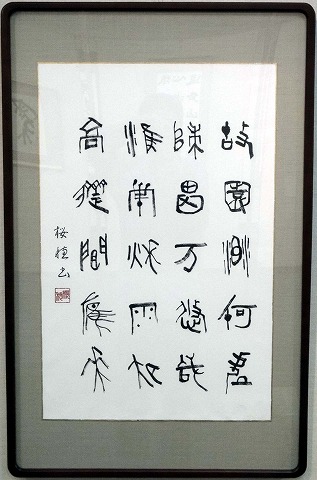 故園渺何處
歸思方悠哉
淮南秋雨夜
高齋聞雁來